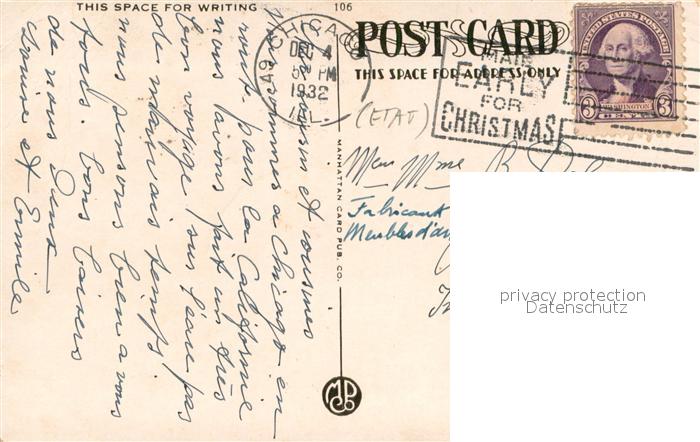 THIS SPACE FOR WRITING
106
POST CARD
THIS SPACE FOR ADDRESS ONLY
CHICAGO
DEC 4
5 PM
1932
ILL.
MAIL
EARLY
FOR
CHRISTMAS
UNITED STATES POSTAGE
WASHINGTON
3 CENTS 3
(ETAT)
cousin et cousines
sommes a Chicago en
route pour la Californie
nous favons fait un très
bon voyage sus l'eau pas
de mauvais temps.
nous pensons bien a vous
tous. bons baisers
de nous deux
et Emile
MANHATTAN CARD PUB. CO.
Mme
Fabricant
Meubles d'a
privacy protection
Datenschutz